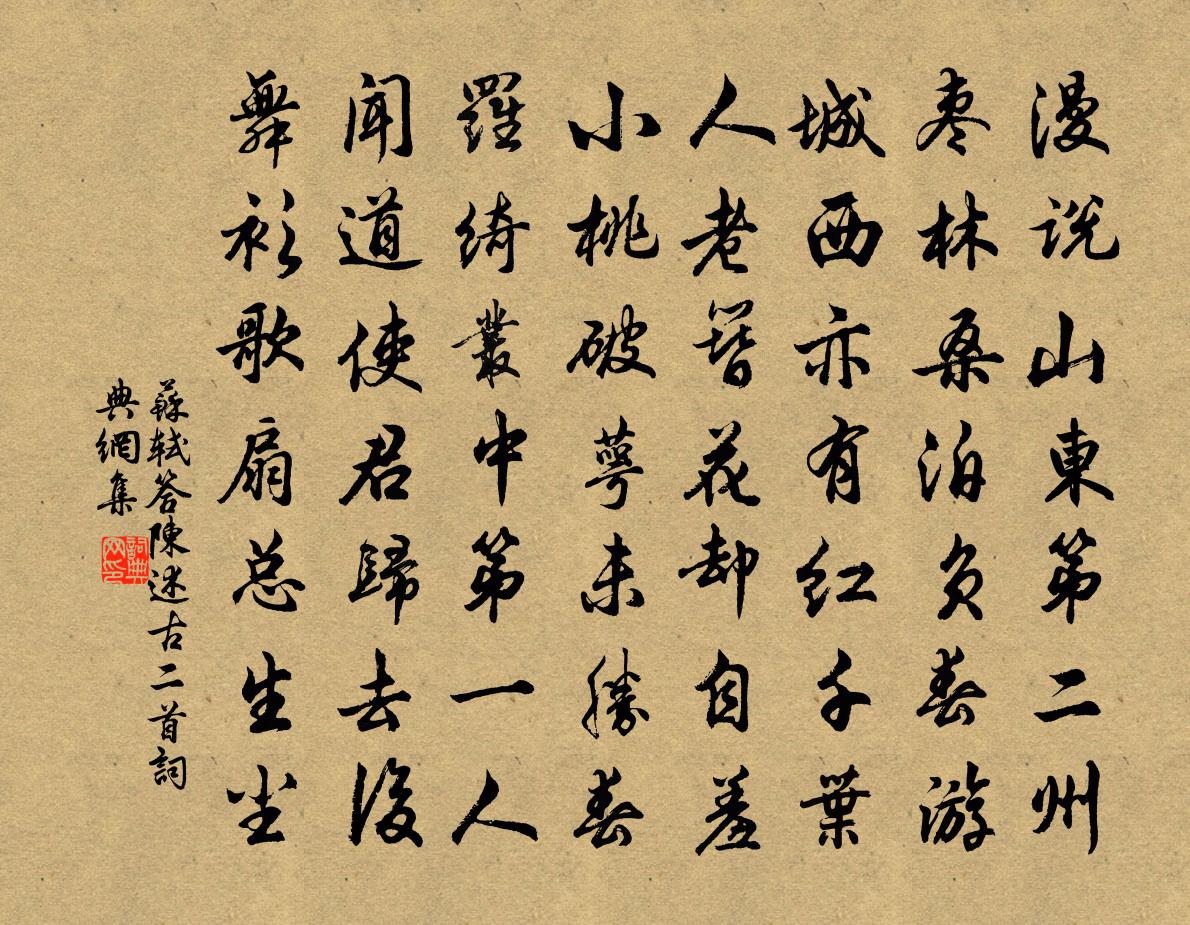 漫说山東第二州
枣林桑泊负春游
城西亦有红千葉
人老簪花却自羞
小桃破萼未勝春
羅綺叢中第一人
闻道使君歸去後
舞衫歌扇总生尘
蘇軾答陳述古二首詞
典網集
詞典网印